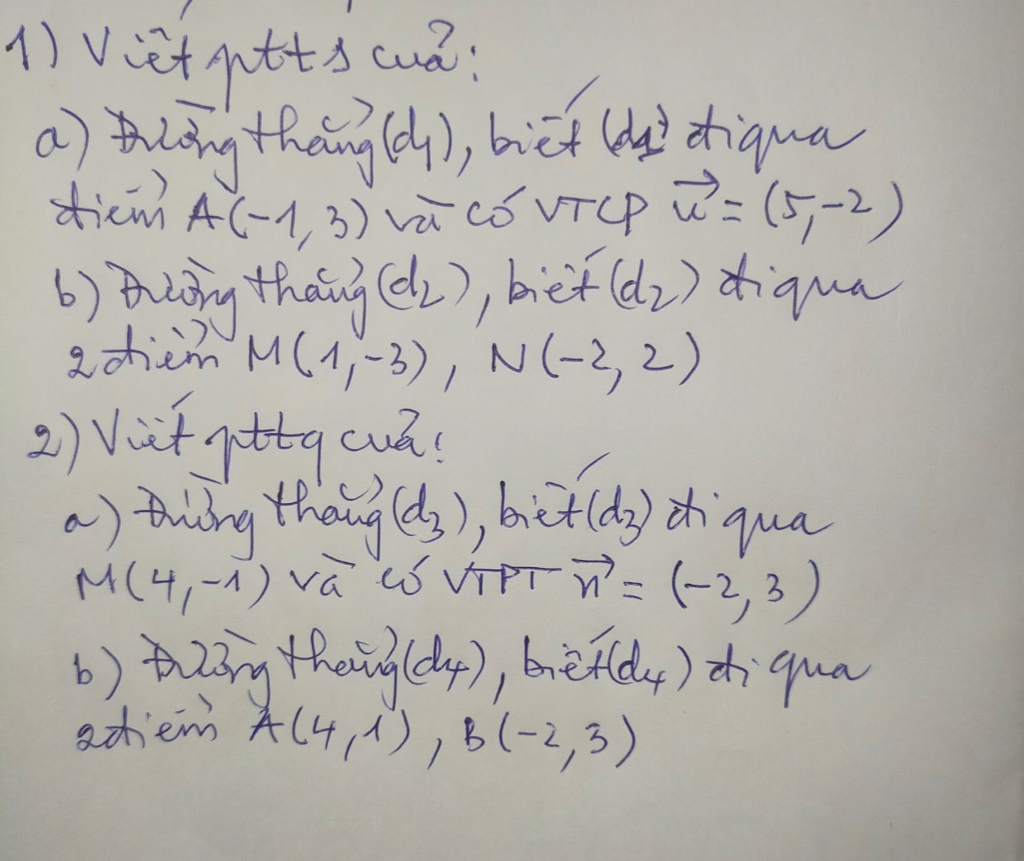 1) Viết ptts của:
a) Đường thẳng (d1), biết (d1) đi qua
điểm A(-1, 3) và có VTCP u⃗ = (5,-2)
b) Đường thẳng (d2), biết (d2) đi qua
2 điểm M(1,-3), N(-2, 2)
2) Viết pttq của:
a) Đường thẳng (d3), biết (d3) đi qua
M(4,-1) và có VTPT n⃗ = (-2, 3)
b) Đường thẳng (d4), biết (d4) đi qua
2 điểm A(4,1), B(-2,3)